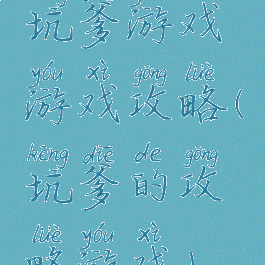 坑爹游戏
yóu xì gōng lüè
游戏攻略(
kēng diē de gōng
坑爹的攻
lüè yóu xì
略游戏)